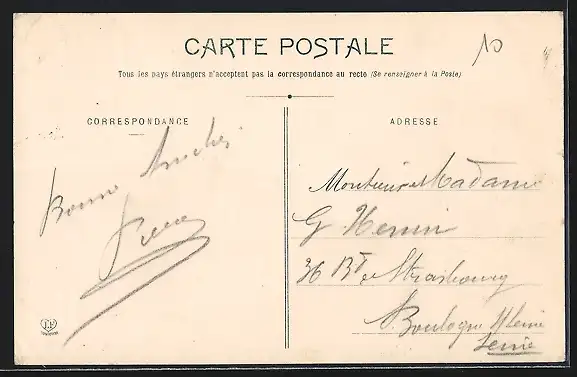 CARTE POSTALE
10
Tous les pays étrangers n'acceptent pas la correspondance au recto (Se renseigner à la Poste)
CORRESPONDANCE
Bonne
ADRESSE
Monsieur et Madame
G. Henin
36 Bd de Strasbourg
Boulogne s/ Seine
Seine